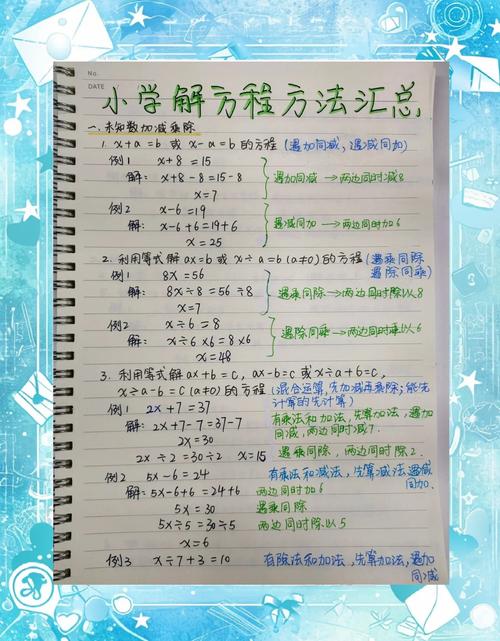 No.
DATE
小学解方程方法汇总
一.未知数加减乘除
1. x+a=b 或 x-a=b 的方程 (遇加同减,遇减同加)
例1 x+8=15
解: x+8-8=15-8 遇加同减→两边同时减8
x=7
例2 x-6=19
x-6+6=19+6 遇减同加→两边同时加6
x=25
2. 利用等式解 ax=b 或 x÷a=b (a≠0) 的方程 (遇乘同除
遇除同乘)
例1 8x=56
解: 8x÷8=56÷8 遇乘同除→两边同时除以8
x=7
例2 x÷6=8
x÷6×6=8×6 遇除同乘→两边同时乘以6
x=48
3. 利用等式解 ax+b=c, ax-b=c 或 x÷a+b=c,
x÷a-b=c (a≠0) 的方程 (混合运算,先加减再乘除;能先
计算的先计算)
例1 2x+7=37 有乘法和加法,先算加法,遇加
解: 2x+7-7=37-7 同减,两边同时减7.
2x=30
2x÷2=30÷2 x=15 遇乘同除,两边同时除2.
例2 5x-6=24 有乘法和减法,先算减法遇减
同加.
解: 5x-6+6=24+6 两边同时加6
5x=30 遇乘同除
5x÷5=30÷5 两边同时除以5
x=6
例3 x÷7+3=10 有除法和加法,先算加法,遇加
同减